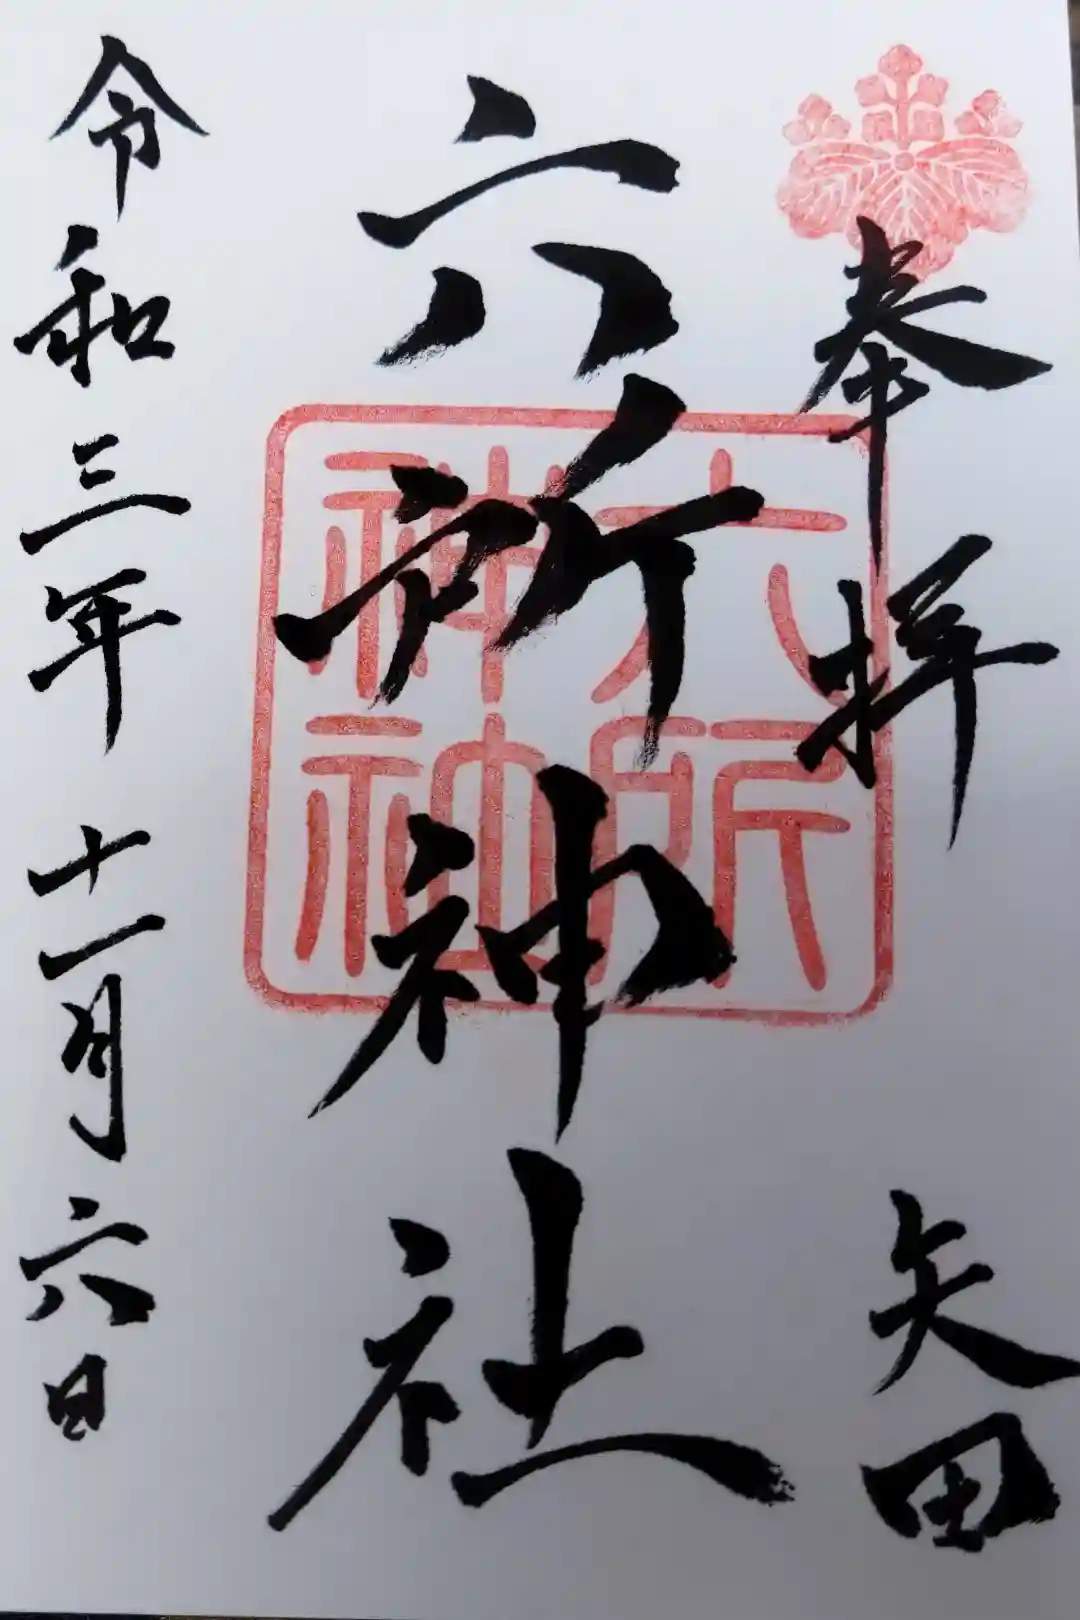 奉拝
矢田
六所神社
六所
神
令和三年十一月六日